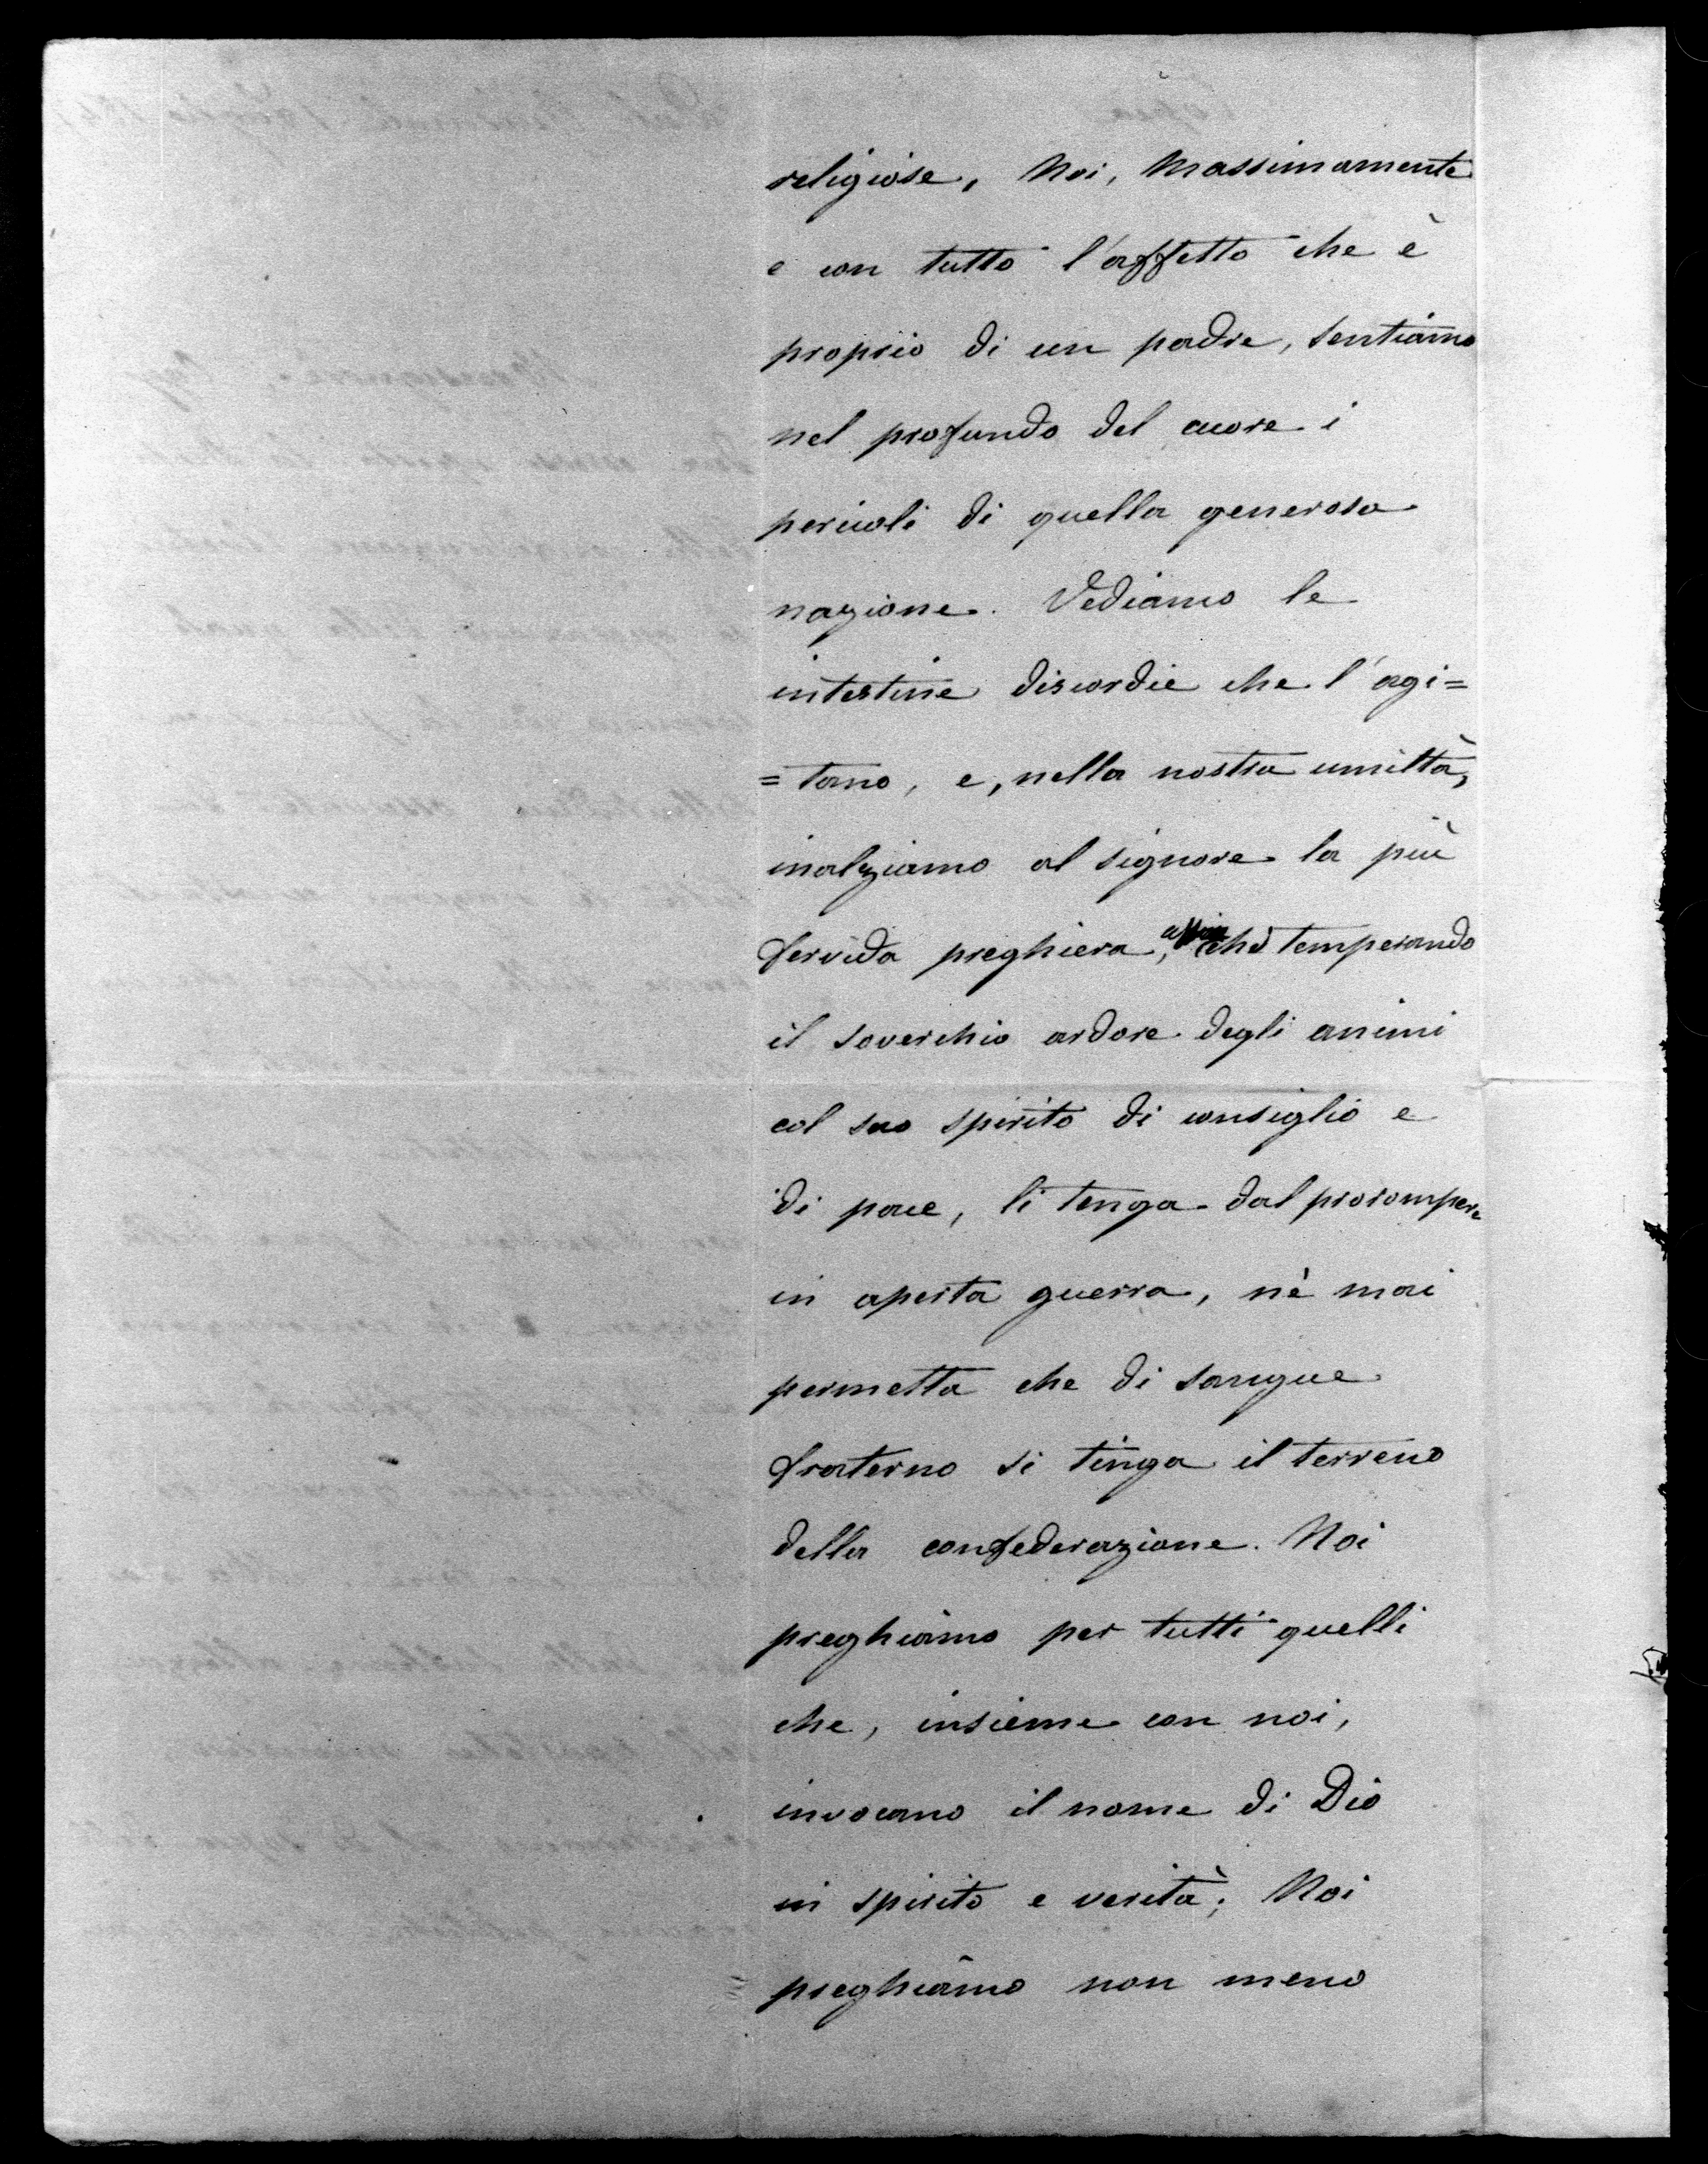 religiose, Noi, massimamente
e con tutto l'affetto che è
proprio di un padre, sentiamo
nel profondo del cuore i
pericoli di quella generosa
nazione. Vediamo le
intestine discordie che l'agi=
=tano, e, nella nostra umiltà,
inalziamo al Signore la più
fervida preghiera, chè temperando
il soverchio ardore degli animi
col suo spirito di consiglio e
di pace, li tenga dal prorompere
in aperta guerra, nè mai
permetta che di sangue
fraterno si tinga il terreno
della confederazione. Noi
preghiamo per tutti quelli
che, insieme con noi,
invocano il nome di Dio
in spirito e verità; Noi
preghiamo non meno